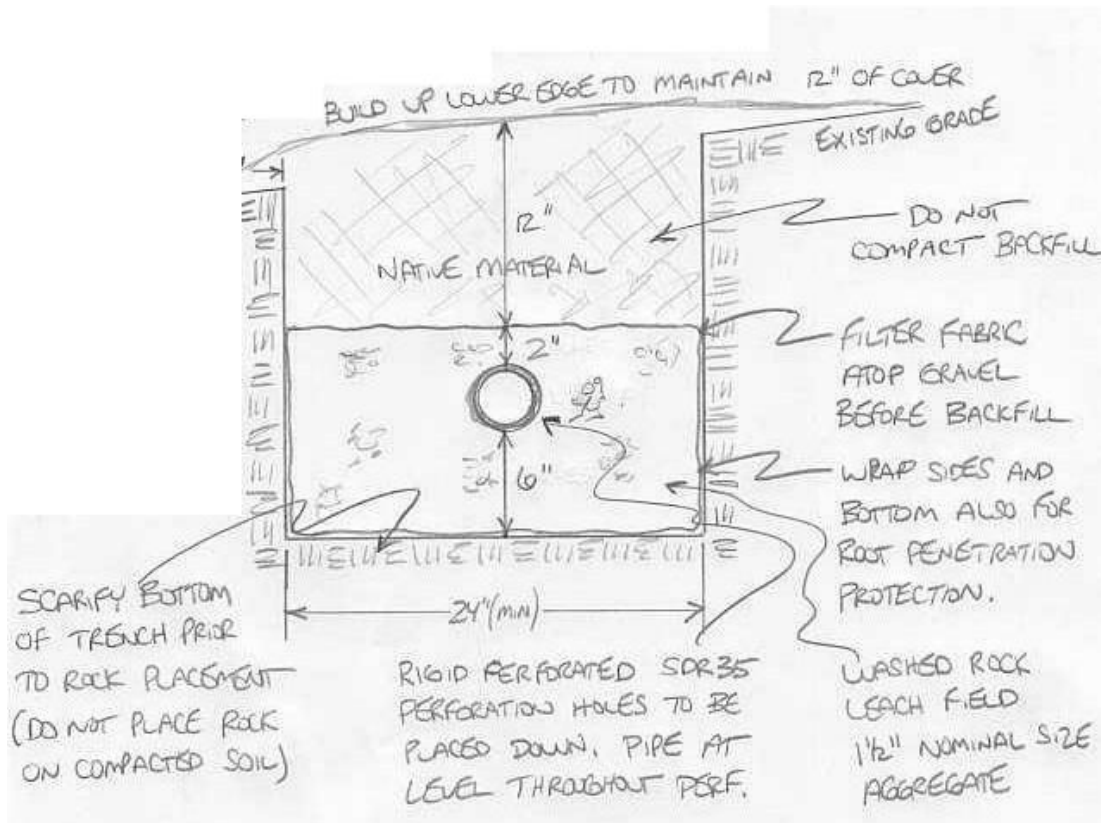 BUILD UP LOWER EDGE TO MAINTAIN 12" OF COVER
EXISTING GRADE
12"
DO NOT
COMPACT BACKFILL
NATIVE MATERIAL
2"
FILTER FABRIC
ATOP GRAVEL
BEFORE BACKFILL
6"
WRAP SIDES AND
BOTTOM ALSO FOR
ROOT PENETRATION
PROTECTION.
SCARIFY BOTTOM
OF TRENCH PRIOR
TO ROCK PLACEMENT
(DO NOT PLACE ROCK
ON COMPACTED SOIL)
24" (MIN)
RIGID PERFORATED SDR35
PERFORATION HOLES TO BE
PLACED DOWN. PIPE AT
LEVEL THROUGHOUT PERF.
WASHED ROCK
LEACH FIELD
1 1/2" NOMINAL SIZE
AGGREGATE